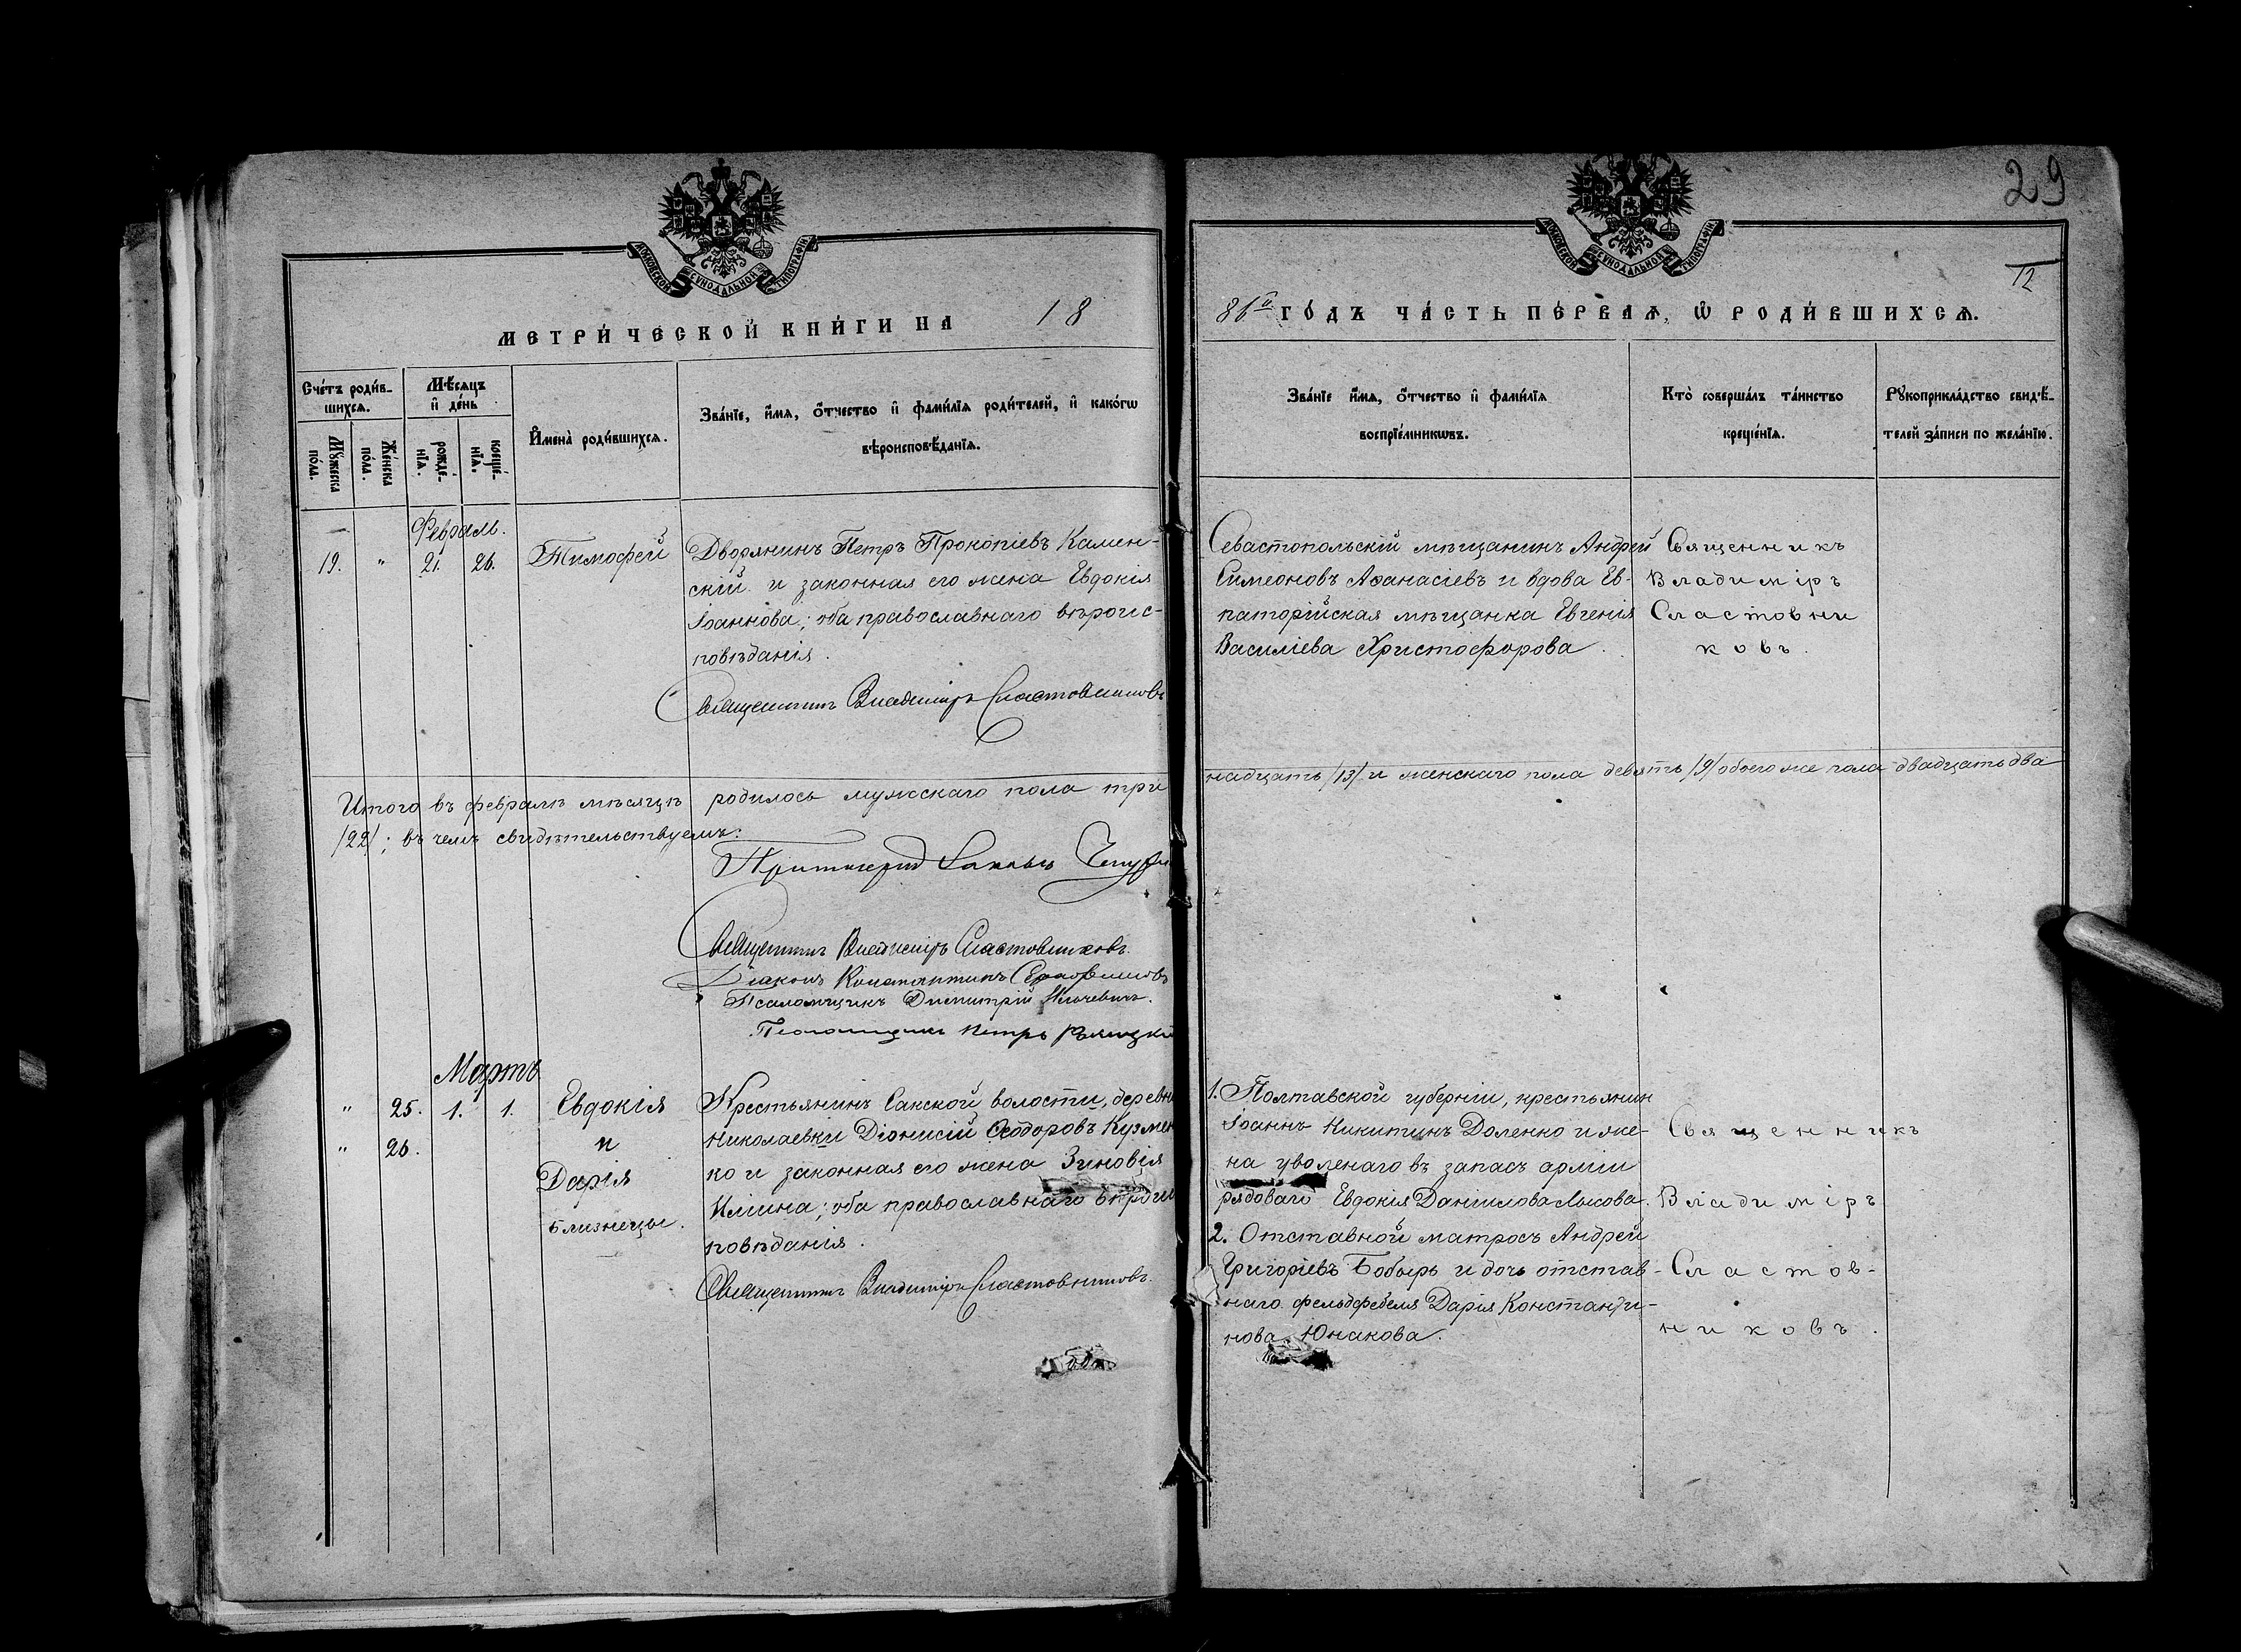 29
12
МОСКОВСКОЙ СѴНОДАЛЬНОЙ ТИПОГРАФІИ.
МОСКОВСКОЙ СѴНОДАЛЬНОЙ ТИПОГРАФІИ.
МЕТРИ́ЧЕСКОЙ КНИ́ГИ НА 18
86й ГО́ДЪ ЧА́СТЬ ПЕ́РВАѦ, Ѡ РОДИ́ВШИХСѦ.
Сче́тъ роди́в-
шихсѧ.
Мꙋ́жеска
по́ла.
Же́нска
по́ла.
Мѣ́сѧцъ
и҆ де́нь
рожде́-
нїѧ.
креще́-
нїѧ.
И҆мена̀ роди́вшихсѧ.
Зва́нїе, и҆́мѧ, ѻ҆́тчество и҆ фами́лїѧ роди́телей, и҆ како́гѡ
вѣроисповѣ́данїѧ.
Зва́нїе и҆́мѧ, ѻ҆́тчество и҆ фами́лїѧ
воспрїе́мникѡвъ.
Кто̀ соверша́лъ та́инство
креще́нїѧ.
Рꙋкоприкла́дство свидѣ́-
телей за́писи по жела́нїю.
Февраль.
19. " 21. 26. Тимофей
Дворянинъ Петръ Прокопіевъ Камен-
скій и законная его жена Евдокія
Іоаннова; оба православнаго вѣроис-
повѣданія.
Священникъ Владиміръ Сластовниковъ
Севастопольскій мѣщанинъ Андрей
Симеоновъ Аѳанасіевъ и вдова Ев-
паторійская мѣщанка Евгенія
Василіева Христофорова.
Священникъ
Владиміръ
Сластовни
ковъ.
Итого въ февралѣ мѣсяцѣ родилось мужскаго пола три
надцать /13/ и женскаго пола девять /9/ обоего же пола двадцать два
/22/; въ чемъ свидѣтельствуемъ:
Протоіерей
Священникъ Владиміръ Сластовниковъ.
Діаконъ Константинъ
Псаломщикъ Димитрій
Псаломщикъ Петръ
Мартъ
" 25. 1. 1. Евдокія
" 26. и
Дарія
близнецы.
Крестьянинъ Сакской волости, деревни
Николаевки Діонисій Ѳеодоровъ Кузмен
ко и законная его жена Зиновія
Иліина; оба православнаго вѣроис
повѣданія.
Священникъ Владиміръ Сластовниковъ.
1. Полтавской губерніи, крестьянин
Іоаннъ Никитинъ Доленко и же-
на уволенаго въ запасъ арміи
рядоваго Евдокія Даніилова Лысова.
2. Отставной матросъ Андрей
Григоріевъ Бобырь и дочь отстав-
наго фельдфебеля Дарія Константи-
нова Юнакова.
Священникъ
Владиміръ
Сластов-
никовъ.